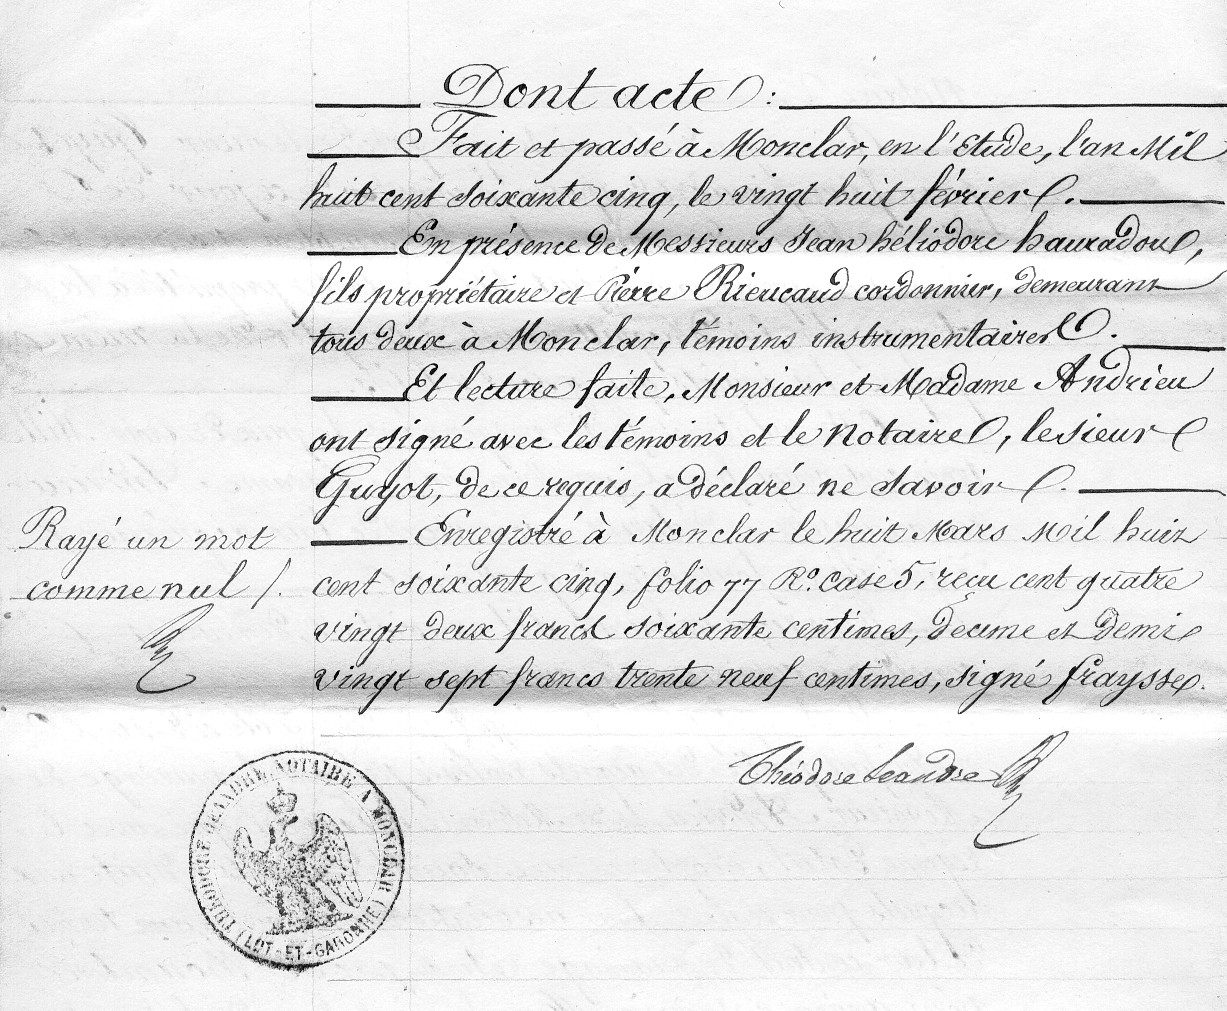 Dont acte :
Fait et passé à Monclar, en l'Etude, l'an Mil
huit cent soixante cinq, le vingt huit février.
En présence de Messieurs Jean héliodore hauradou,
fils propriétaire et Pierre Rieucaud cordonnier, demeurant
tous deux à Monclar, témoins instrumentaires.
Et lecture faite, Monsieur et Madame Andrieu
ont signé avec les témoins et le Notaire, le sieur
Guyot, de ce requis, a déclaré ne savoir.
Rayé un mot
comme nul /.
Enregistré à Monclar le huit Mars Mil huit
cent soixante cinq, folio 77 R.º Case 5, reçu cent quatre
vingt deux francs soixante centimes, décime et demi
vingt sept francs trente neuf centimes, signé fraysse.
Théodore Leandre
THEODORE LEANDRE NOTAIRE A MONCLAR
(LOT-ET-GARONNE)